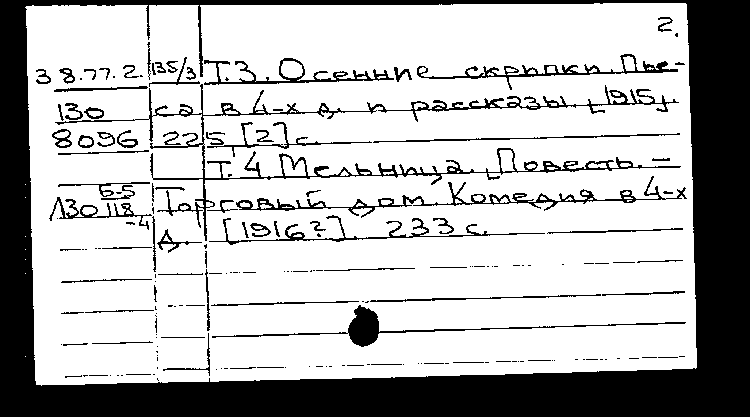 2.
38.77.2. 135/3 Т.3. Осенние скрипки. Пье-
130 са в 4-х д. и рассказы. [1915].
8096 225, [2] с.
Т.4. Мельница. Повесть. –
130 Б-5/118-4 Торговый дом. Комедия в 4-х
д. [1916?]. 233 с.